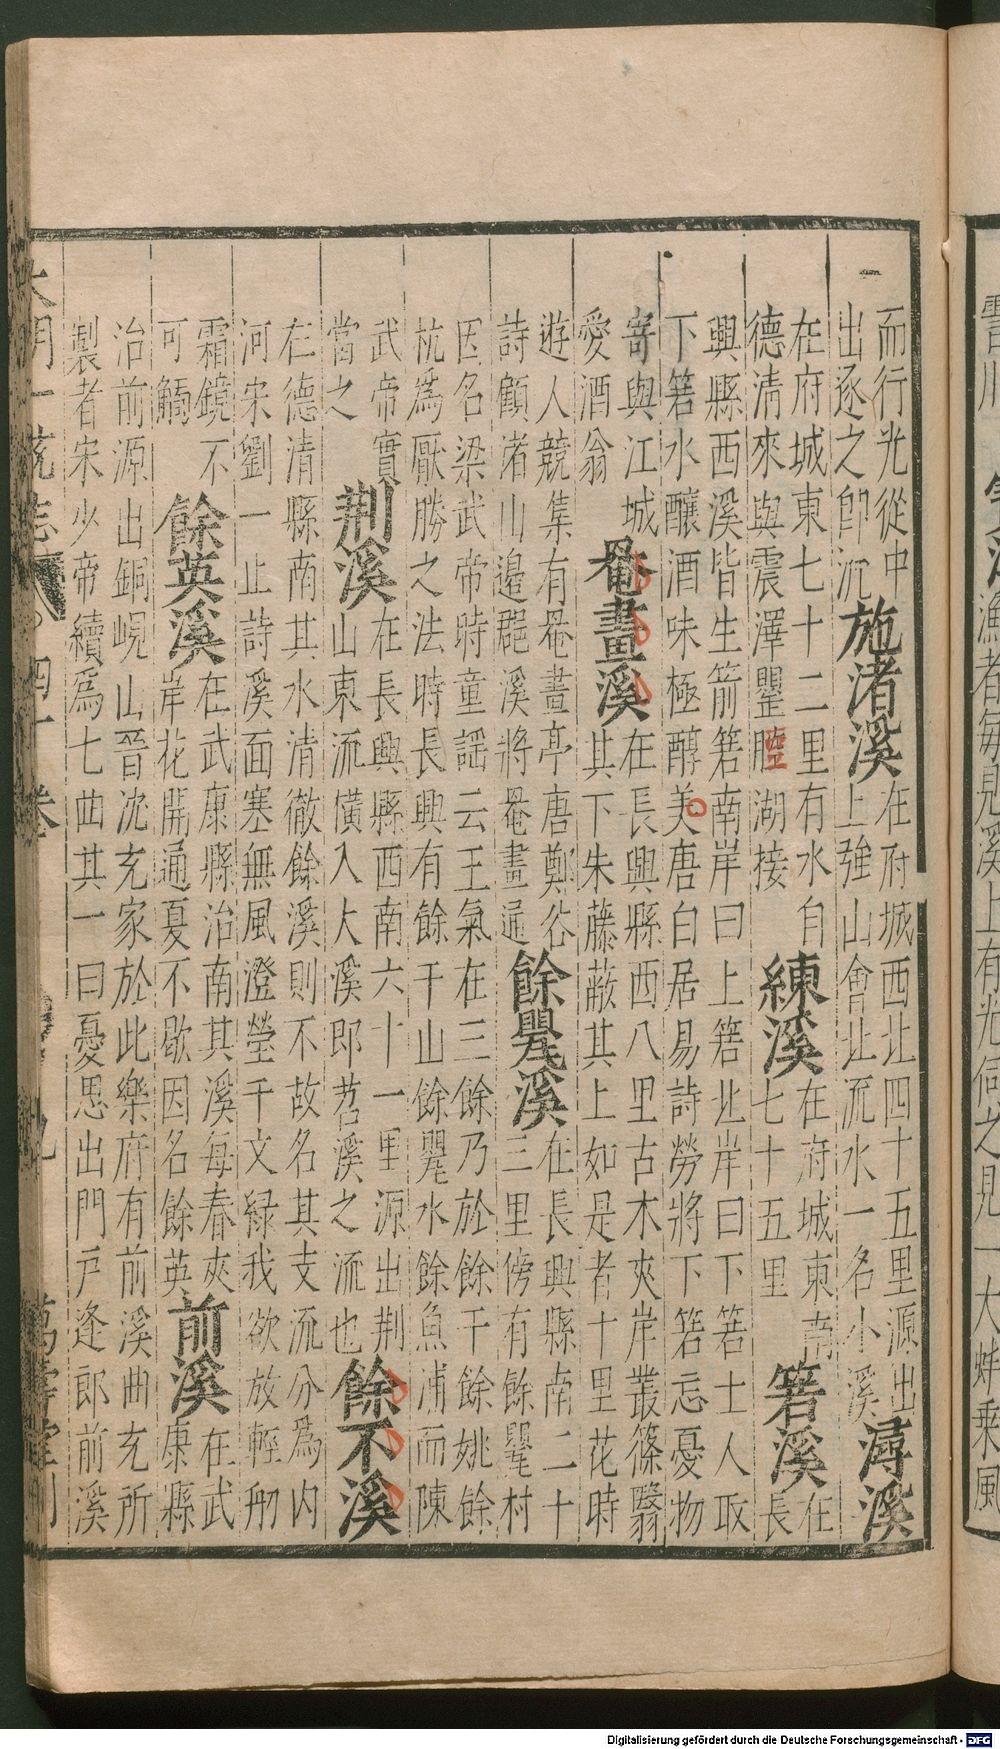 而行光從中
出逐之即沉
施渚溪
在府城西北四十五里源出
上強山會北流水一名小溪
潯溪
在府城東七十二里有水自
德清來與震澤罌脰湖接
練溪
在府城東南
七十五里
箬溪
在
長
興縣西溪皆生箭箬南岸曰上箬北岸曰下箬土人取
下箬水釀酒味極醇美唐白居易詩勞將下箬忘憂物
寄與江城
愛酒翁
罨畫溪
在長興縣西八里古木夾岸叢篠翳
其下朱藤蔽其上如是者十里花時
遊人競集有罨畫亭唐鄭谷
詩顧渚山邊郡溪將罨畫通
餘罌溪
在長興縣南二十
三里傍有餘罌村
因名梁武帝時童謡云王氣在三餘乃於餘干餘姚餘
杭為厭勝之法時長興有餘干山餘罌水餘魚浦而陳
武帝實
當之
荆溪
在長興縣西南六十一里源出荆
山東流橫入大溪即苕溪之流也
餘不溪
在德清縣南其水清徹餘溪則不故名其支流分為内
河宋劉一止詩溪面塞無風澄瑩千文緑我欲放輕舠
霜鏡不
可觸
餘英溪
在武康縣治南其溪每春夾
岸花開通夏不歇因名餘英
前溪
在武
康縣
治前源出銅峴山晉沈充家於此樂府有前溪曲充所
製者宋少帝續為七曲其一曰憂思出門戶逢郎前溪
大明一統志 四十卷 九 萬壽堂刊
Digitalisierung gefördert durch die Deutsche Forschungsgemeinschaft - DFG